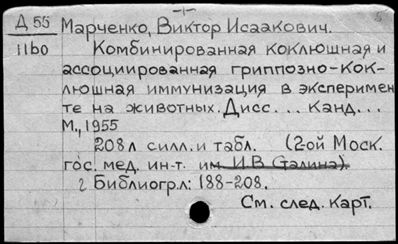 Д 55 Марченко, Виктор Исаакович.
11б0 Комбинированная коклюшная и
ассоциированная гриппозно-кок-
люшная иммунизация в эксперимен
те на животных. Дисс... Канд...
М., 1955
208л с илл. и табл. (2-ой Моск.
гос. мед. ин-т. им И.В Сталина).
2 Библиогр. л: 188-208.
См. след. карт.